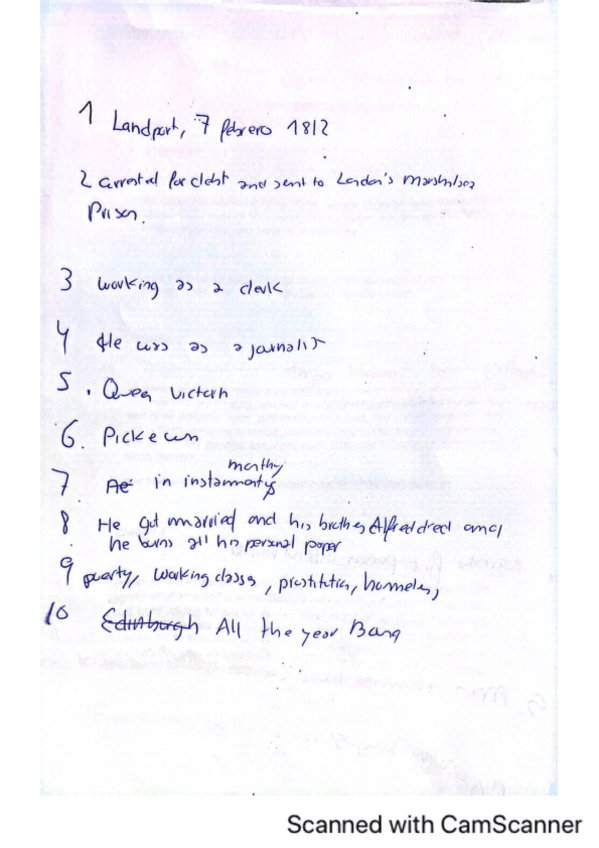 1 Landport, 7 febrero 1812
2 arrested for debt and sent to London's Marshalsea
Prison.
3 working as a clerk
4 He was as a journalist
5. Queen Victoria
6. Pickewn
monthy
7 in instanmontys
8 He got married and his brother Alfred dred and
he burns all his personal paper
9 puerty, working classes, prostitution, homeless,
10 Edinburgh All the year Bang
Scanned with CamScanner